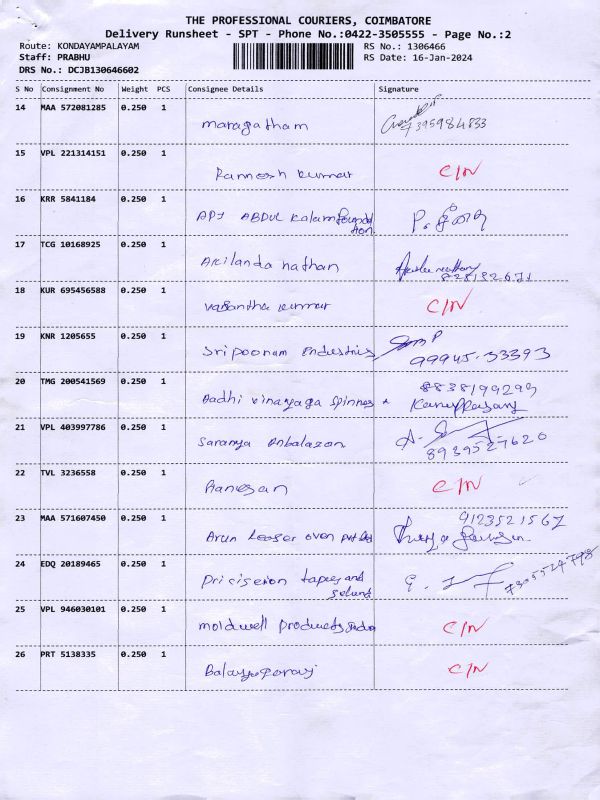 THE PROFESSIONAL COURIERS, COIMBATORE
Delivery Runsheet - SPT - Phone No.:0422-3505555 - Page No.:2
Route: KONDAYAMPALAYAM RS No.: 1306466
Staff: PRABHU RS Date: 16-Jan-2024
DRS No.: DCJB130646602
S No Consignment No Weight PCS Consignee Details Signature
14 MAA 572081285 0.250 1
maragatham 7395984833
15 VPL 221314151 0.250 1
Ramesh kumar C/N
16 KRR 5841184 0.250 1
APJ ABDUL kalam foundation
17 TCG 10168925 0.250 1
Akilanda nathan
18 KUR 695456588 0.250 1
Vasantha kumar C/N
19 KNR 1205655 0.250 1
Sri poonam industries 99945-33393
20 TMG 200541569 0.250 1 8838199293
Aadhi vinayaga spinners
21 VPL 403997786 0.250 1
Saranya Anbalagan 8939527620
22 TVL 3236558 0.250 1
Ganesan C/N
23 MAA 571607450 0.250 1 9123521567
Arun
24 EDQ 20189465 0.250 1
tapes and
25 VPL 946030101 0.250 1
moldwell products india C/N
26 PRT 5138335 0.250 1
C/N